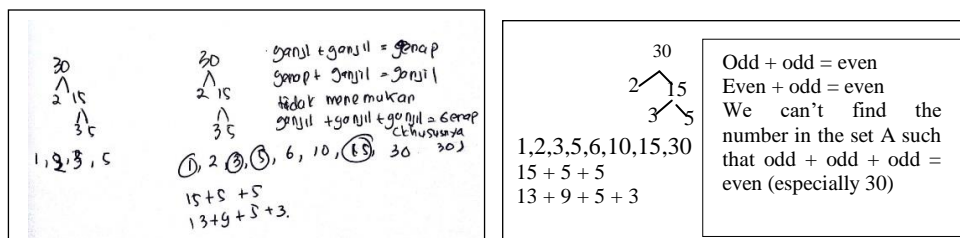 30
2 15
3 5
1, 2, 3, 5
30
2 15
3 5
ganjil + ganjil = genap
genap + ganjil = ganjil
tidak menemukan
ganjil + ganjil + ganjil = Genap
(khususnya 30)
1, 2, 3, 5, 6, 10, 15, 30
15 + 5 + 5
13 + 9 + 5 + 3.
30
2 15
3 5
1,2,3,5,6,10,15,30
15 + 5 + 5
13 + 9 + 5 + 3
Odd + odd = even
Even + odd = even
We can't find the
number in the set A such
that odd + odd + odd =
even (especially 30)